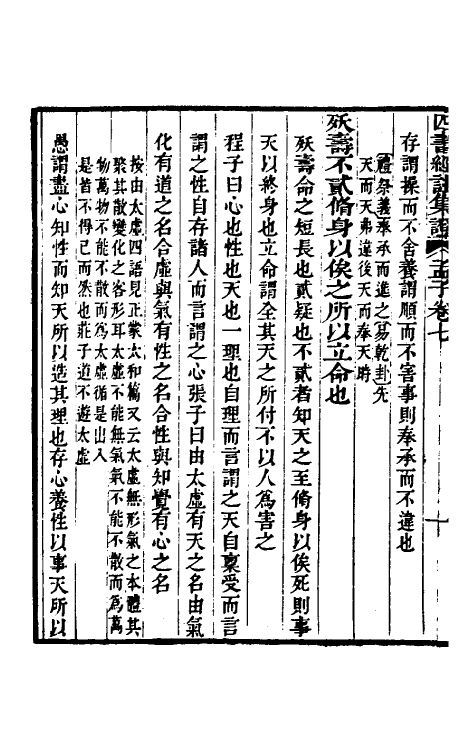 四書經註集證 孟子卷七
存謂操而不舍養謂順而不害事則奉承而不違也
禮祭義奉承而進之易乾卦先
天而天弗違後天而奉天時
殀壽不貳脩身以俟之所以立命也
殀壽命之短長也貳疑也不貳者知天之至脩身以俟死則事
天以終身也立命謂全其天之所付不以人爲害之
程子曰心也性也天也一理也自理而言謂之天自稟受而言
謂之性自存諸人而言謂之心張子曰由太虛有天之名由氣
化有道之名合虛與氣有性之名合性與知覺有心之名
按由太虛四語見正蒙太和篇又云太虛無形氣之本體其
聚其散變化之客形耳太虛不能無氣氣不能不散而爲萬
物萬物不能不散而爲太虛循是出入
是皆不得已而然也莊子道不遊太虛
愚謂盡心知性而知天所以造其理也存心養性以事天所以